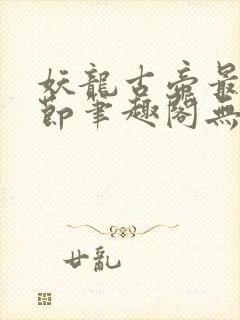 妖龍古帝最
節筆趣閣無
廿亂